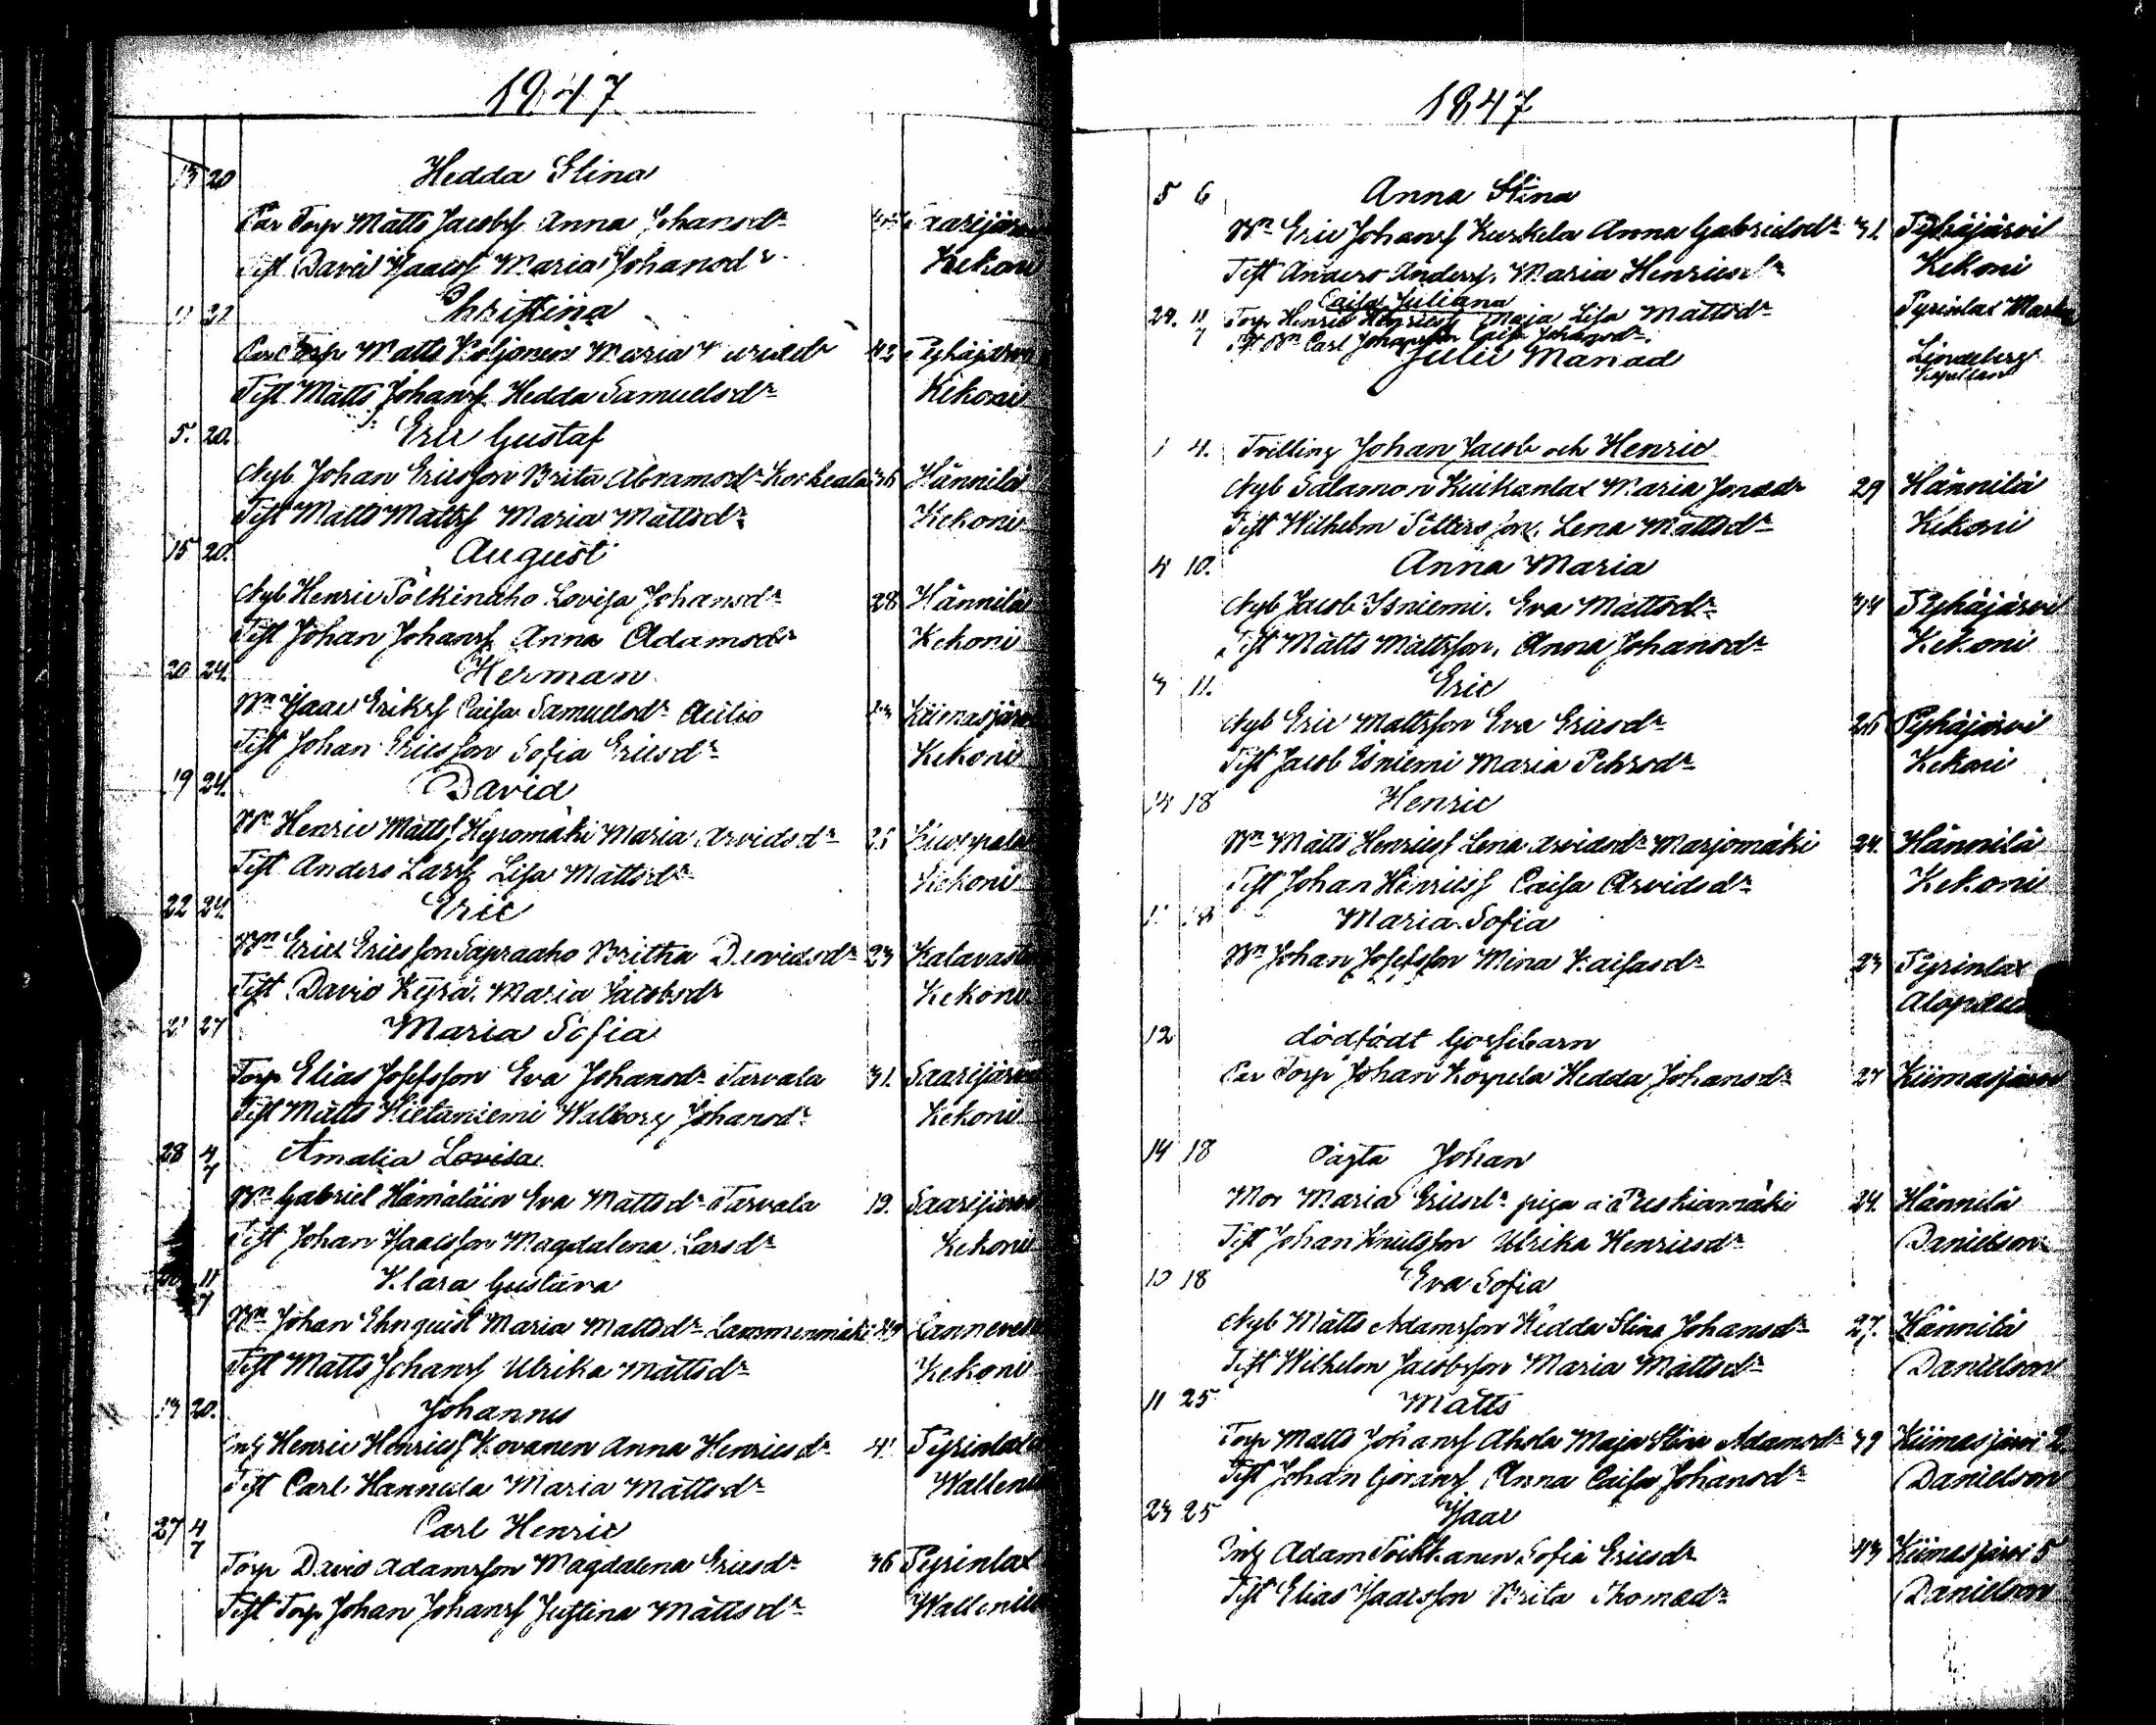 1847
13 20 Hedda Stina
Par Torp Matts Jacobsf Anna Johansdr Saarijärvi
Test David Isaacsf Maria Johansdr Kekoni
22 Christina
Torp Matts Koljonen Maria 42 Pyhäjärvi
Test Matts Johansf Hedda Samuelsdr Kekoni
5. 20. Eric Gustaf
Nyb Johan Ericsson Brita Abramsdr Korkeala 36 Hännilä
Test Matts Mattsf Maria Mattsdr Kekoni
15 20. August
Nyb Henric Pölkinaho Lovisa Johansdr 28 Hännilä
Test Johan Johansf Anna Adamsdr Kekoni
20 24. Herman
Bn Isaac Eriksf Caisa Samuelsdr Aulio Kiimasjärvi
Test Johan Ericsson Sofia Ericsdr Kekoni
19 24. David
Bn Henric Mattsf Hyromäki Maria Arvidsdr Kuoppala
Test Anders Larsf Lisa Mattsdr Kekoni
22 24. Eric
Bn Eric Ericsson Sapraaho Britha Davidsdr 23 Kalavasti
Test David Kyrä. Maria Jacobsdr Kekoni
21 27 Maria Sofia
Torp Elias Josefsson Eva Johansdr Tarvala 31. Saarijärvi
Test Matts Hietaniemi Walborg Johansdr Kekoni
28 4/7 Amalia Lovisa
Bn Gabriel Hämäläin Eva Mattsdr Tarvala 19. Saarijärvi
Test Johan Isaacsson Magdalena Larsdr Kekoni
11/7 Klara Gustava
Bn Johan Ehnquist Maria Mattsdr Lammenmäki Kannevesi
Test Matts Johansf Ulrika Mattsdr Kekoni
13 20. Johannes
Inh Henric Henricsf Kovanen Anna Henricsdr 41 Pyrinlax
Test Carl Hannula Maria Mattsdr Wallenius
27 4/7 Carl Henric
Torp David Adamsson Magdalena Ericsdr 36 Pyrinlax
Test Torp Johan Johansf Justina Mattsdr Wallenius
1847
5 6 Anna Stina
Bn Eric Johansf Kuskela Anna Gabrielsdr 31. Pyhäjärvi
Test Anders Andersf. Maria Henricsdr Kekoni
Caisa Juliana
29. 11/7 Torp Henric Henricsf Maja Lisa Mattsdr Pyrinlax
Test Bn Carl Johansson Caisa Johansdr. Lindeberg
Julii Månad Kapellan
1 4. Tvilling Johan Jacob och Henric
Nyb Salamon Kuikanlax Maria Jonædr 29 Hännilä
Test Wilhelm Pettersson. Lena Mattsdr Kekoni
4 10. Anna Maria
Nyb Jacob Isniemi. Eva Mattsdr 34 Pyhäjärvi
Test Matts Mattsson. Anna Johansdr Kekoni
3 11. Eric
Nyb Eric Mattsson Eva Ericsdr 26 Pyhäjärvi
Test Jacob Isniemi Maria Pehrsdr Kekoni
14 18 Henric
Bn Matts Henricsf Lena Arvidsdr Marjomäki 24. Hännilä
Test Johan Henricsf Caisa Arvidsdr Kekoni
18 Maria Sofia
Bn Johan Josefsson Mina Kaisasdr 23 Pyrinlax
Alopæus
12 dödfödt Gossebarn
Par Torp Johan Korpela Hedda Johansdr 27 Kiimasjärvi
14 18 Oägta Johan
Mor Maria Ericsdr piga å Puskiamäki 24. Hännilä
Test Johan Knutsson Ulrika Henricsdr Danielson
10 18 Eva Sofia
Nyb Matts Adamsson Hedda Stina Johansdr 27. Hännilä
Test Wilhelm Jacobsson Maria Mattsdr Danielson
11 25 Matts
Torp Matts Johansf Ahola Maja Stina Adamsdr 39 Kiimasjärvi 2
Test Johan Göransf Anna Caisa Johansdr Danielson
23 25 Isaac
Inh Adam Toikkanen Sofia Ericsdr 43 Kiimasjärvi 5
Test Elias Isaacsson Brita Thomædr Danielson